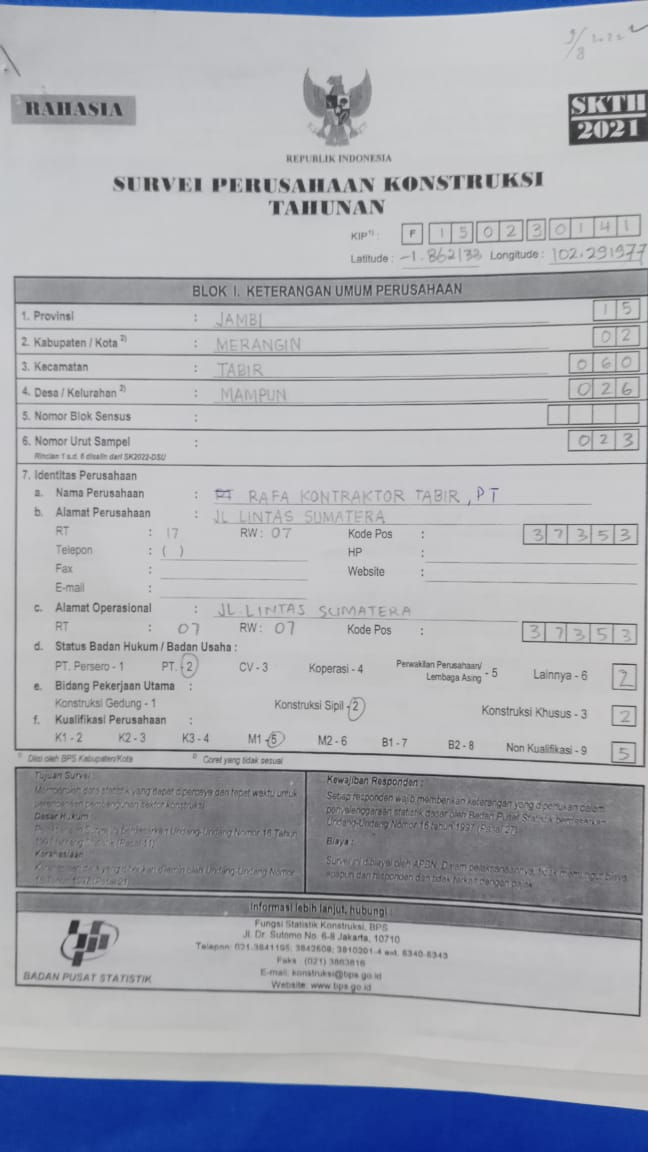 RAHASIA
SKTH
2021
REPUBLIK INDONESIA
SURVEI PERUSAHAAN KONSTRUKSI
TAHUNAN
KIP 1) : F 1 5 0 2 3 0 1 4 1
Latitude : -1.862133 Longitude : 102.291977
BLOK I. KETERANGAN UMUM PERUSAHAAN
1. Provinsi : JAMBI 1 5
2. Kabupaten / Kota 2) : MERANGIN 0 2
3. Kecamatan : TABIR 0 6 0
4. Desa / Kelurahan 2) : MAMPUN 0 2 6
5. Nomor Blok Sensus :
6. Nomor Urut Sampel : 0 2 3
Rincian 1 s.d. 6 disalin dari SK2022-DSU
7. Identitas Perusahaan
a. Nama Perusahaan : PT RAFA KONTRAKTOR TABIR, PT
b. Alamat Perusahaan : JL LINTAS SUMATERA
RT : 17 RW : 07 Kode Pos : 3 7 3 5 3
Telepon : ( ) HP :
Fax : Website :
E-mail :
c. Alamat Operasional : JL. LINTAS SUMATERA
RT : 07 RW : 07 Kode Pos : 3 7 3 5 3
d. Status Badan Hukum / Badan Usaha :
PT. Persero - 1 PT. - 2 CV - 3 Koperasi - 4 Perwakilan Perusahaan/ Lembaga Asing - 5 Lainnya - 6 2
e. Bidang Pekerjaan Utama :
Konstruksi Gedung - 1 Konstruksi Sipil - 2 Konstruksi Khusus - 3 2
f. Kualifikasi Perusahaan :
K1 - 2 K2 - 3 K3 - 4 M1 - 5 M2 - 6 B1 - 7 B2 - 8 Non Kualifikasi - 9 5
1) Diisi oleh BPS Kabupaten/Kota 2) Coret yang tidak sesuai
Tujuan Survei :
Memperoleh data statistik yang dapat dipercaya dan tepat waktu untuk
perencanaan pembangunan sektor konstruksi
Dasar Hukum :
Undang-Undang Nomor 16 Tahun
Kerahasiaan
Undang-Undang Nomor
Kewajiban Responden :
Setiap responden wajib memberikan keterangan yang diperlukan dalam
penyelenggaraan statistik dasar oleh Badan Pusat Statistik berdasarkan
Undang-Undang Nomor 16 tahun 1997 (Pasal 27)
Biaya :
Survei ini dibiayai oleh APBN. Dalam pelaksanaannya, tidak memungut biaya
apapun dari responden dan tidak terkait dengan pajak
Informasi lebih lanjut, hubungi :
Fungsi Statistik Konstruksi, BPS
Jl. Dr. Sutomo No. 6-8 Jakarta, 10710
Telepon: 021.3841195; 3842508; 3810291-4 ext. 6340-6343
Faks : (021) 3863816
E-mail: konstruksi@bps.go.id
Website: www.bps.go.id
BADAN PUSAT STATISTIK